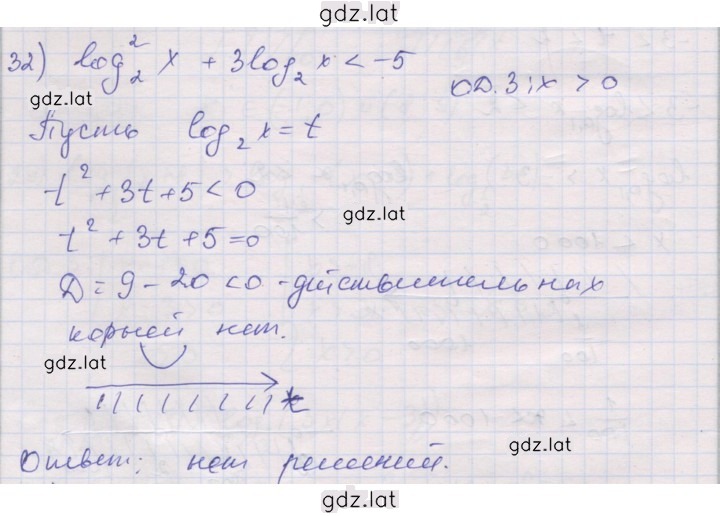 gdz.lat
32) log₂² x + 3log₂ x < -5
ОД.З: x > 0
gdz.lat
Пусть log₂ x = t
t² + 3t + 5 < 0
gdz.lat
t² + 3t + 5 = 0
D = 9 - 20 < 0 - действительных
корней нет.
gdz.lat
t
Ответ: нет решений.
gdz.lat
gdz.lat